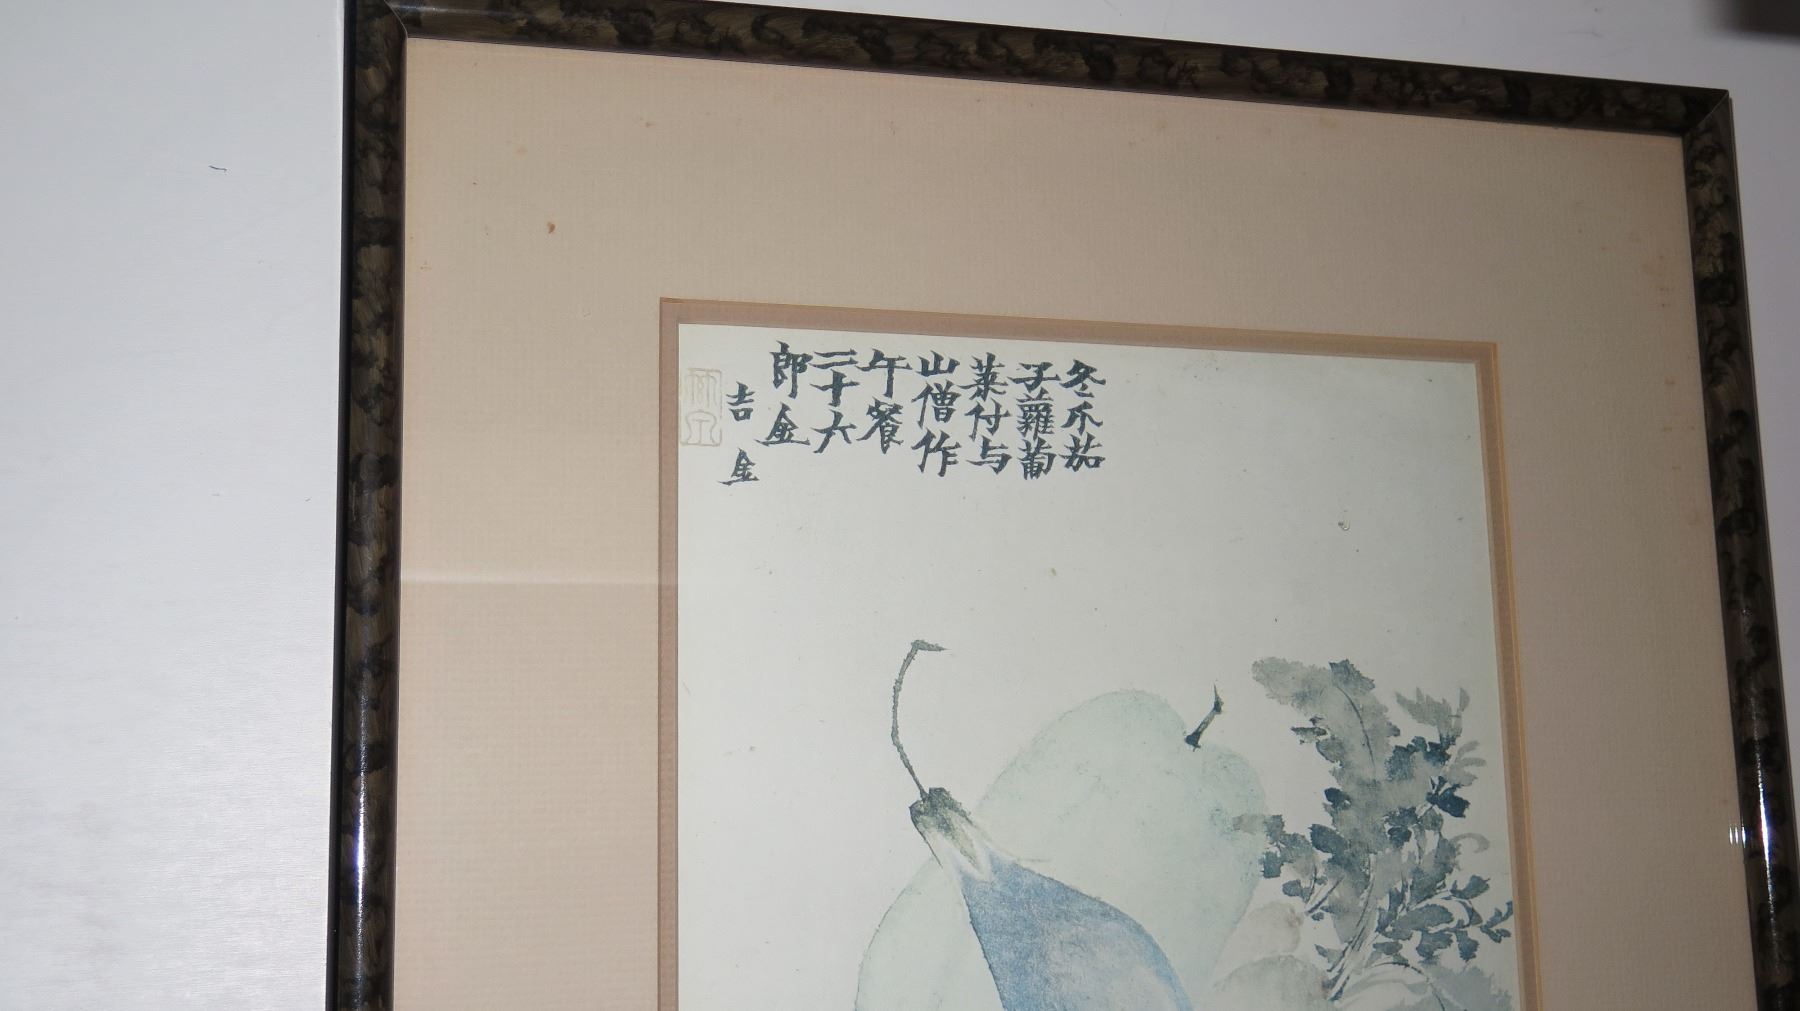 冬爪茄
子蘿蔔
菜付与
山僧作
午餐
二十六
郎金
吉金